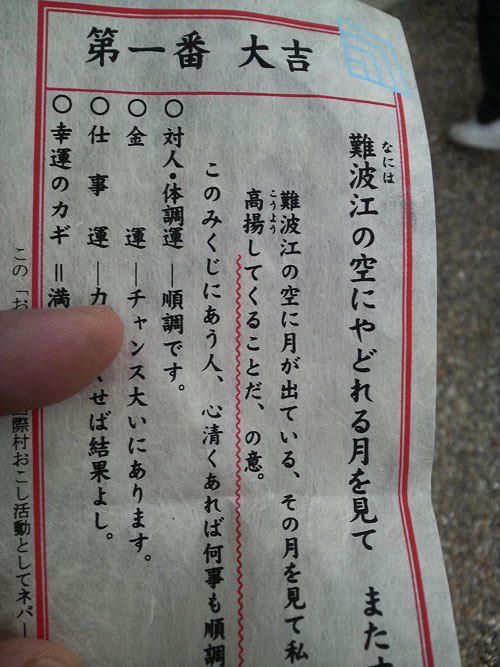 第一番 大吉
なには
難波江の空にやどれる月を見て また
難波江の空に月が出ている、その月を見て私
こうよう
高揚してくることだ、の意。
このみくじにあう人、心清くあれば何事も順調
○対人・体調運―順調です。
○金運―チャンス大いにあります。
○仕事運―力 せば結果よし。
○幸運のカギ＝満
この「お 国際村おこし活動としてネパー